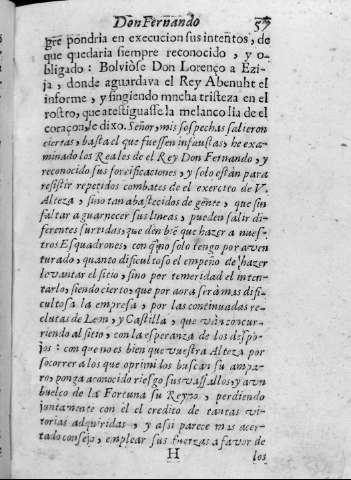 Don Fernando 57
gre pondria en execucion sus intentos, de
que quedaria siempre reconocido, y o-
bligado: Bolviòse Don Lorenço a Ezi-
ja, donde aguardava el Rey Abenuht el
informe, y fingiendo mncha tristeza en el
rostro, que atestiguasse la melanco lia de el
coraçon, le dixo. Señor, mis sospechas salieron
ciertas, basta el que fuessen infaustas, he exa-
minado los Reales de el Rey Don Fernando, y
reconocido sus forcificaciones, y solo están para
resistir repetidos combates de el exercito de V.
Alteza, sino tan abastecidos de gẽnte, que sin
faltar a guarnecer sus lineas, pueden salir di-
ferentes surtidas, que dèn biẽ que hazer a nues-
tros Esquadrones, con q̃ no solo tengo por aven
turado, quanto dificultoso el empeño de hazer
levantar el sitio, sino per temeridad el inten-
tarlo, siendo cierto, que por aora serà mas difi-
cultosa la empresa, por las continuadas re-
clutas de Leon, y Castilla, que vàn concur-
riendo al sitio, con la esperanza de los despo-
jos: con que no es bien que vuestra Alteza por
socorrer a los que oprimidos buscan su ampa-
ro, ponga a conocido riesgo sus vassallos, y a vn
buelco de la Fortuna su Reyno, perdiendo
juntamente con el el credito de tantas vi-
torias adquiridas, y assi parece mas acer-
tado consejo, emplear sus fuerzas a favor de
H los